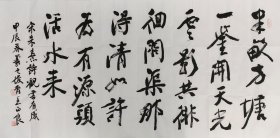 半畝方塘
一鑒開天光
雲影共徘
徊問渠那
得清如許
為有源頭
活水来
宋朱熹詩觀書有感
甲辰春